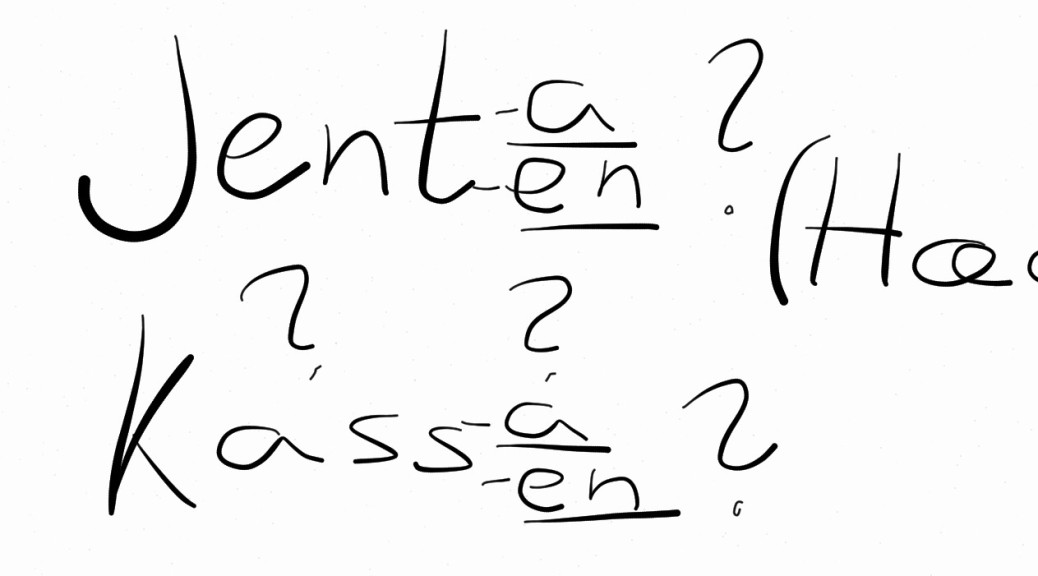 Jent -a / -en ? (Hæ
? ?
Kass -a / -en ?